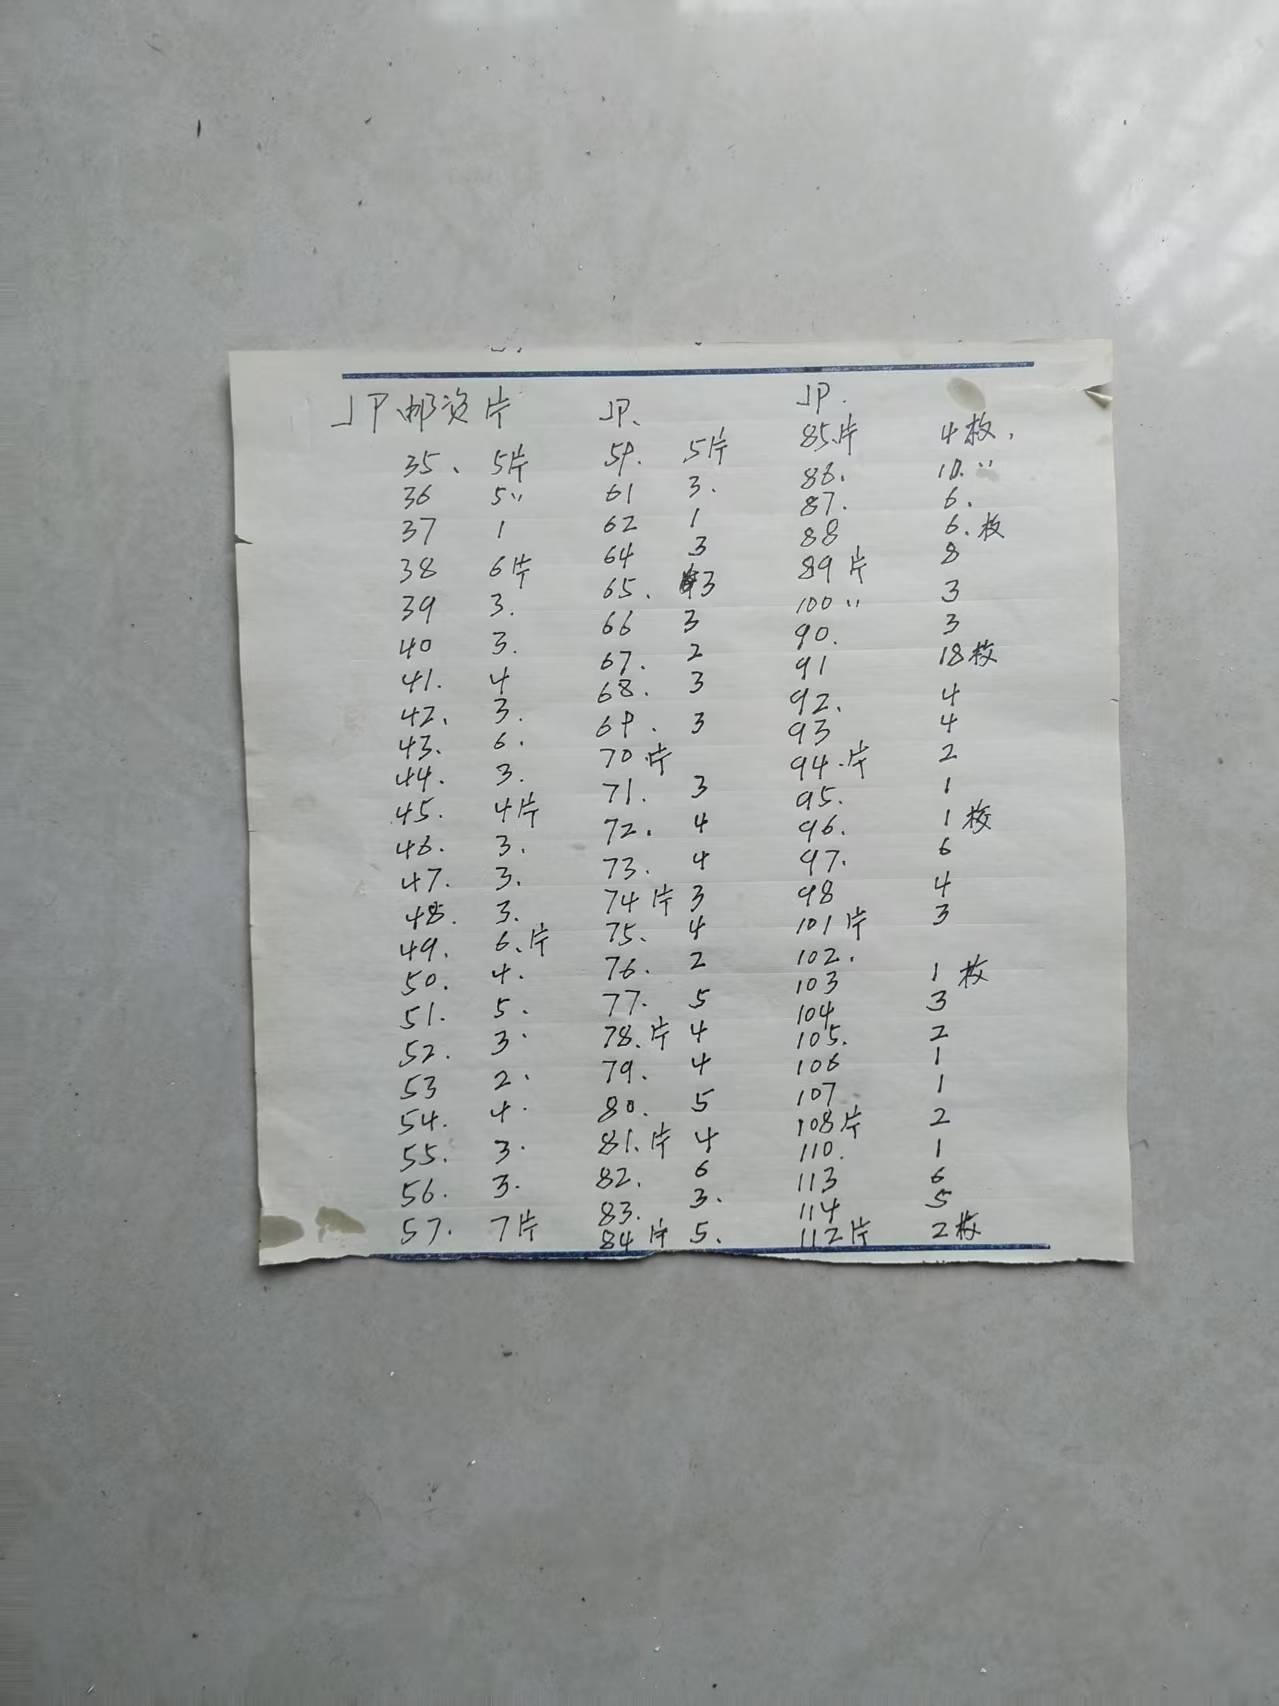 JP邮资片
35. 5片
36 5〃
37 1
38 6片
39 3.
40 3.
41. 4
42. 3.
43. 6.
44. 3.
45. 4片
46. 3.
47. 3.
48. 3.
49. 6.片
50. 4.
51. 5.
52. 3.
53 2.
54. 4.
55. 3.
56. 3.
57. 7片
JP.
59. 5片
61 3.
62 1
64 3
65. 3
66 3
67. 2
68. 3
69. 3
70.片
71. 3
72. 4
73. 4
74片 3
75. 4
76. 2
77. 5
78.片 4
79. 4
80. 5
81.片 4
82. 6
83. 3.
84片 5.
JP.
85.片 4枚.
86. 10.〃
87. 6.
88 6.枚
89片 8
100〃 3
90. 3
91 18枚
92. 4
93 4
94.片 2
95. 1
96. 1枚
97. 6
98 4
101片 3
102.
103 1枚
104 3
105. 2
106 1
107 1
108片 2
110. 1
113 6
114 5
112片 2枚